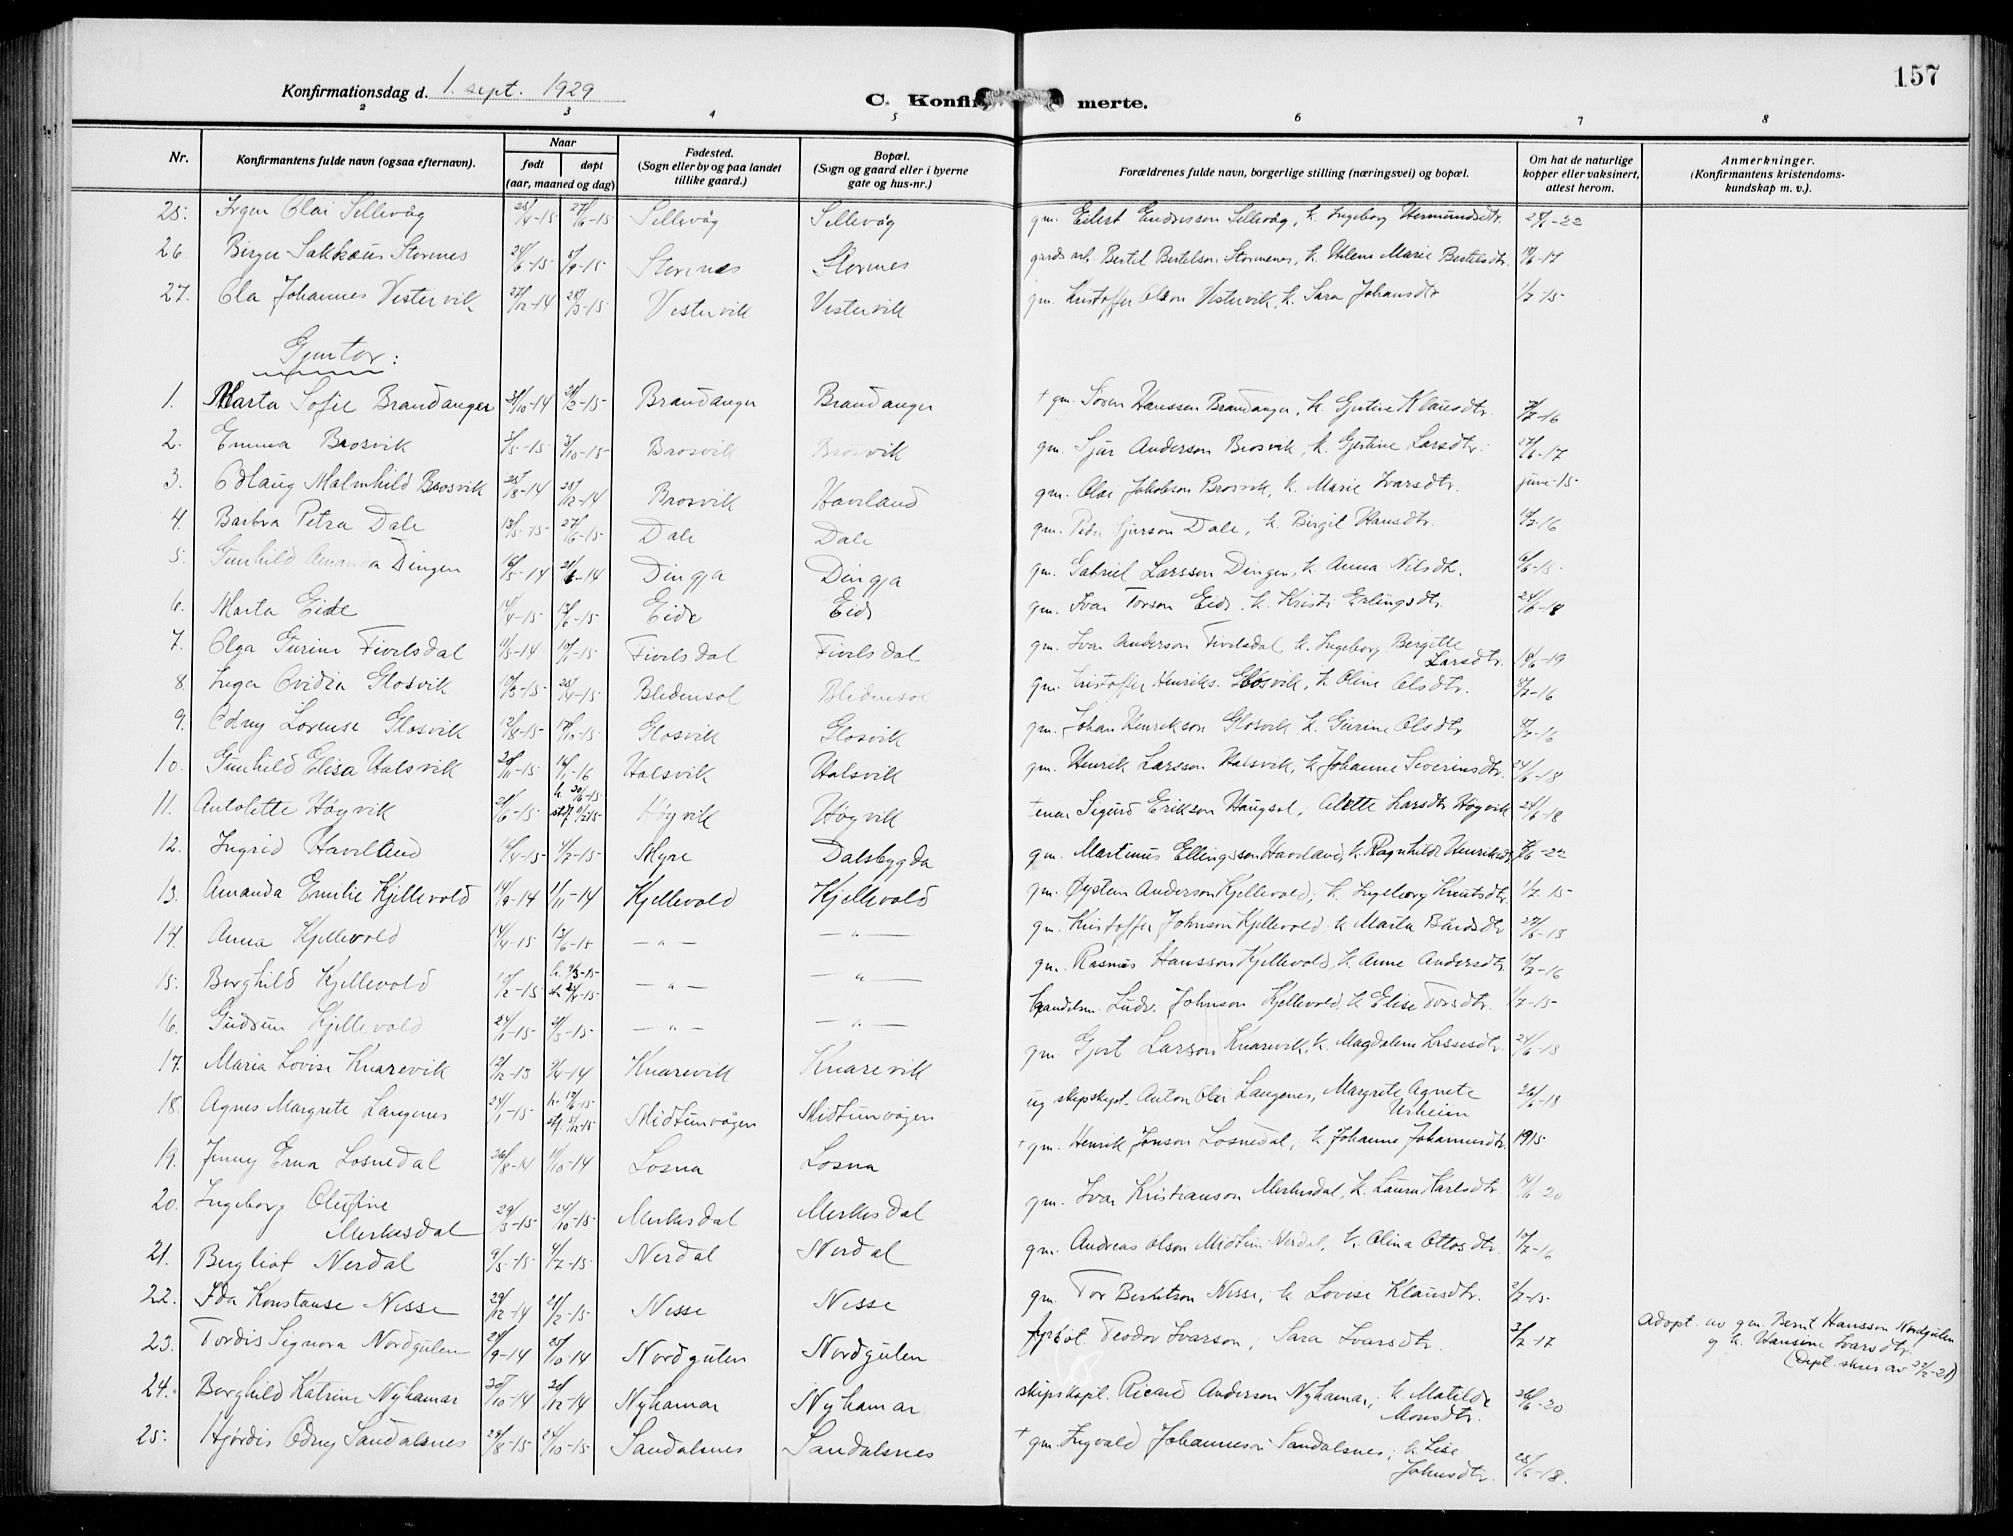 157
Konfirmationsdag d. 1. sept. 1929
C. Konfirmerte.
2 3 4 5 6 7 8
Nr. Konfirmantens fulde navn (ogsaa efternavn). Naar født døpt (aar, maaned og dag) Fødested. (Sogn eller by og paa landet tillike gaard.) Bopæl. (Sogn og gaard eller i byerne gate og hus-nr.) Forældrenes fulde navn, borgerlige stilling (næringsvei) og bopæl. Om hat de naturlige kopper eller vaksinert, attest herom. Anmerkninger. (Konfirmantens kristendoms- kundskap m. v.).
25. Olai Sellevåg Sellevåg Sellevåg gm. Endresson Sellevåg, k. Ingeborg
26. Birger Stormes 24/6-15 8/8-15 Stormes Stormes Bertel Bertelson Stormenes, k. Helene Marie Bertelsdtr.
27. Ola Johannes Vestervik 27/12-14 28/3-15 Vestervik Vestervik gm. Kristoffer Olson Vestervik, k. Sara Johansdtr 1/7-15
Gjentor:
1. Marta Sofie Brandanger 31/10-14 21/2-15 Brandanger Brandanger + gm. Søren Hanssen Brandanger, k. Gjertine Klausdtr.
2. Emma Brosvik 3/5-15 3/10-15 Brosvik Brosvik gm. Sjur Anderson Brosvik, k. Gjertine Larsdtr. 27/6-17
3. Odlaug Malmhild Brosvik 28/8-14 28/12-14 Brosvik Haveland gm. Olai Jakobson Brosvik, k. Marie Ivarsdtr. juni-15
4. Barbra Petra Dale 13/5-15 27/6-15 Dale Dale gm. Peder Sjurson Dale, k. Birgit Hansdtr.
5. Gunhild Amanda Dingen Dingja Dingja gm. Gabriel Larsson Dingen, k. Anna Nilsdtr.
6. Marta Eide 14/4-15 Eide Eide gm. Ivar Torson Eide, k. Kristi Erlingsdtr. 24/6-18
7. Olga Gurine Fivelsdal Fivelsdal Fivelsdal gm. Ivar Anderson Fivelsdal, k. Ingeborg Bergitte
Larsdtr.
8. Inga Ovidia Glosvik 25/4-15 Bledensol Bledensol gm. Kristoffer Henriks. Glosvik, k. Oline Olsdtr.
9. Odny Lovense Glosvik Glosvik Glosvik gm. Johan Henrikson Glosvik k. Gurine Olsdtr.
10. Gunhild Elisa Halsvik Halsvik Halsvik gm. Henrik Larsson Halsvik, k. Johanne Severinsdtr. 24/6-18
11. Antolette Høyvik Høyvik Høyvik Sigurd Erikson Haugsol, Alette Larsdtr Høyvik 24/6-18
12. Ingrid Haveland Myre Dalsbygda gm. Martinus Ellingsson Haveland, k. Ragnhilde Henriksdtr
13. Amanda Emilie Kjellevold 14/9-14 1/11-14 Kjellevold Kjellevold gm. Øystein Anderson Kjellevold, k. Ingeborg Knutsdtr 1/7-15
14. Anna Kjellevold 14/4-15 13/6-15 — „ — — „ — gm. Kristoffer Johnson Kjellevold, k. Marta Bårdsdtr
15. Borghild Kjellevold — „ — — „ — gm. Rasmus Hansson Kjellevold, k. Anne Andersdtr.
16. Gudrun Kjellevold 24/1-15 21/3-15 — „ — — „ — handelsm. Ludv. Johnson Kjellevold, k. Elise Torsdtr. 1/7-15
17. Maria Lovise Knarevik Knarevik Knarevik gm. Gjert Larson Knarevik, k. Magdalene 24/6-18
18. Agnes Margrete Langenes 24/1-15 Midtunvågen Midtunvågen ug skipskapt. Anton Olai Langenes, Margrete Agnete
Urheim 26/6-18
19. Jenny Erna Losnedal 26/8-14 11/10-14 Losna Losna + gm. Henrik Jonson Losnedal, k. Johanne Johannesdtr. 1915
20. Ingeborg Olufine
Merkesdal 29/3-15 24/10-15 Merkesdal Merkesdal gm. Ivar Kristianson Merkesdal, k. Laura Karlsdtr.
21. Bergliot Nerdal 9/5-15 4/7-15 Nerdal Nerdal gm. Andreas Olson Midtun-Nerdal, k. Olina Ottosdtr.
22. Ida Konstanse Nesse 29/12-14 21/2-15 Nesse Nesse gm. Tor Bertelson Nesse, k. Lovise Klausdtr. 2/7-15
23. Tordis Signora Nordgulen 24/9-14 25/10-14 Nordgulen Nordgulen fyrbøt. Teodor Ivarson, Sara Ivarsdtr. Adopt. av gm. Bernt Hansson Nordgulen
og k. Hansine Ivarsdtr.
24. Borghild Katrine Nyhamar 20/12-14 Nyhamar Nyhamar skipskapt. Ricard Anderson Nyhamar, k. Matilde
Monsdtr. 26/6-20
25. Hjørdis Odny Sandalsnes 29/8-15 24/10-15 Sandalsnes Sandalsnes + gm. Ingvald Johanneson Sandalsnes, k. Lise
Johnsdtr.